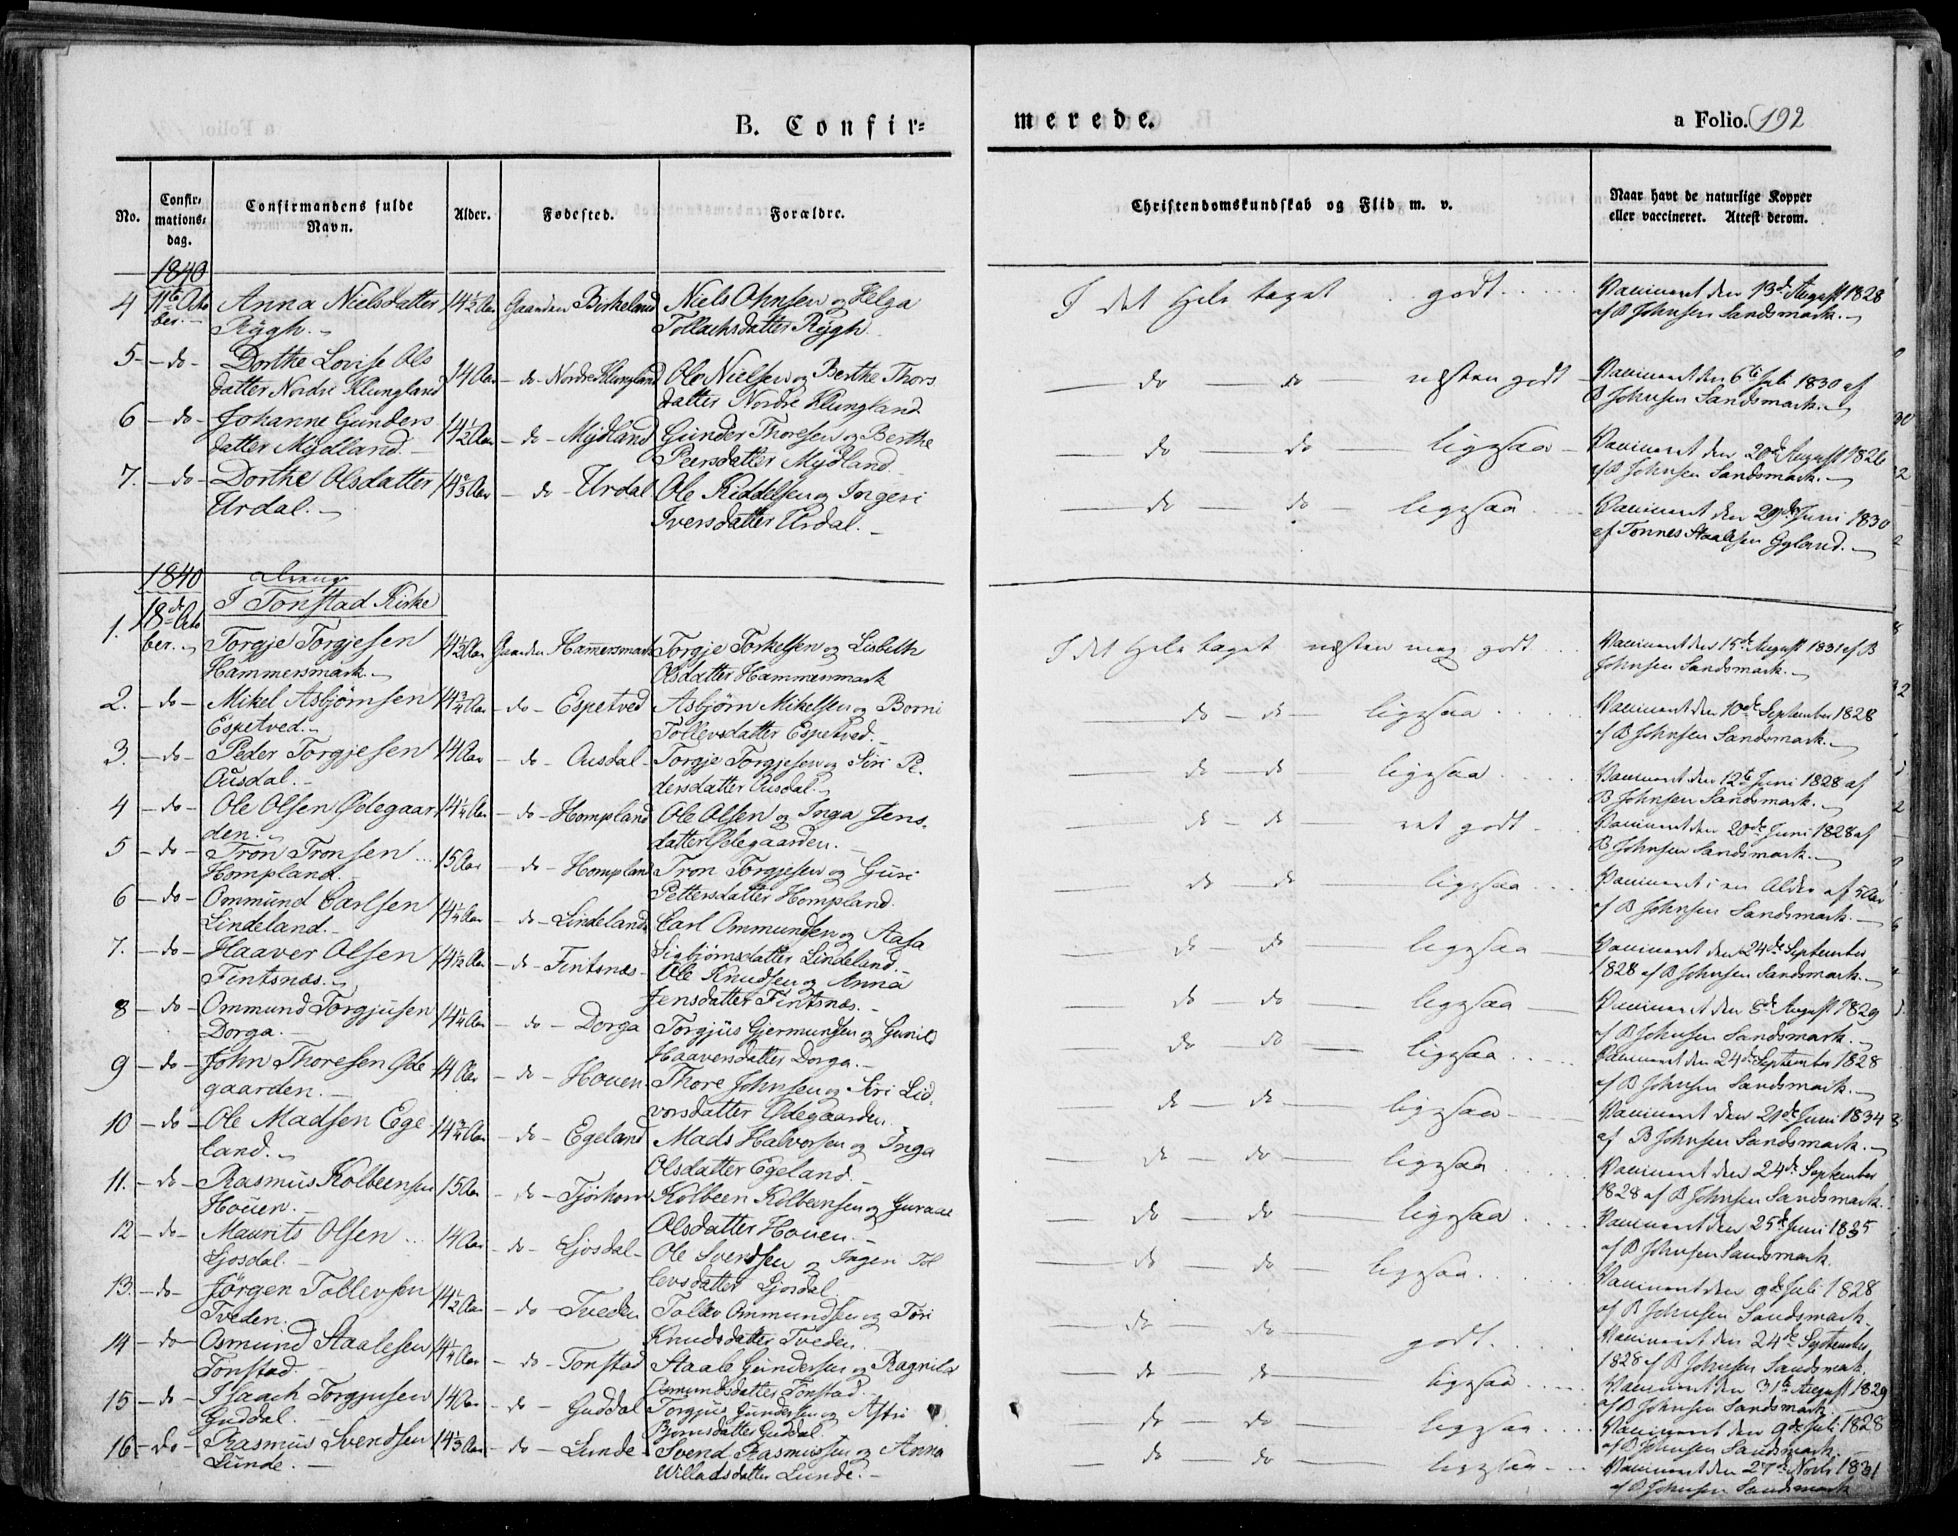 B. Confir=
merede.
a Folio. 192
No.
Confir-
mations-
dag.
Confirmandens fulde
Navn.
Alder.
Fødested.
Forældre.
Christendomskundskab og Flid m. v.
Naar havt de naturlige Kopper
eller vaccineret. Attest derom.
1840
4 11te Octo Anna Nielsdatter 14½ Aar Gaarden Birkeland Niels Ohnsen og Helga I det hele taget godt Vaccineret den 13de August 1828
ber. Rygh. Tollachsdatter Rygh. af B Johnsen Sandsmark.
5 do Dorthe Lovise Ols 14 Aar do Nordre Klungland Ole Nielsen og Berthe Thors do do næsten godt Vaccineret den 6te Juli 1830 af
datter Nordre Klungland datter Nordre Klungland B Johnsen Sandsmark.
6 do Johanne Gunders 14½ Aar do Mydland Gunder Thoresen og Berthe do do ligesaa Vaccineret den 20de August 1826
datter Mydland. Peersdatter Mydland af B Johnsen Sandsmark.
7. do Dorthe Olsdatter 14⅔ Aar do Urdal Ole Kiddelsen og Ingeri do do ligesaa Vaccineret den 29de Juni 1830
Urdal. Iversdatter Urdal. af Tønnes Staalesen Gyland.
1840 Drenge
I Tonstad Kirke
1. 18de Octo
ber. Torgje Torgjesen 14½ Aar Gaarden Hammersmark Torgje Torkelsen og Lisbeth I det hele taget næsten meg godt Vaccineret den 15de August 1831 af B
Hammersmark. Olsdatter Hammersmark Johnsen Sandsmark.
2. do Mikel Asbjørnsen 14¾ Aar do Espetved Asbjørn Mikelsen og Borni do do ligesaa Vaccineret den 10de September 1828
Espetved. Tollevsdatter Espetved. af B Johnsen Sandsmark.
3. do Peder Torgjesen 14 Aar do Ousdal Torgje Torgjesen og Siri Pe- do do ligesaa Vaccineret den 12te Juni 1828 af
Ousdal. dersdatter Ousdal. B Johnsen Sandsmark.
4 do Ole Olsen Ødegaar 14¼ Aar do Hompland Ole Olsen og Inga Jens- do do ret godt Vaccineret den 20de Juni 1828 af
den. datter Ødegaarden. B Johnsen Sandsmark.
5 do Tron Tronsen 15 Aar do Hompland Tron Torgjesen og Guri do do ligesaa Vaccineret i en Alder af 5 Aar
Hompland. Pettersdatter Hompland. af B Johnsen Sandsmark.
6 do Ommund Carlsen 14¼ Aar do Lindeland Carl Ommundsen og Aasa do do ligesaa Vaccineret den 24de September
Lindeland. Sigbjørnsdatter Lindeland. 1828 af B Johnsen Sandsmark.
7. do Haaver Olsen 14½ Aar do Fintsnæs Ole Knudsen og Anna do do ligesaa Vaccineret den 8de August 1829
Fintsnæs. Jensdatter Fintsnæs. af B Johnsen Sandsmark.
8 do Ommund Torgjusen 14¼ Aar do Dorga Torgjus Gjermundsen og Gunild do do ligesaa Vaccineret den 24de September 1828
Dorga. Haaversdatter Dorga. af B Johnsen Sandsmark.
9 do John Thoresen Øde 14 Aar do Houen Thore Johnsen og Siri Lid- do do ligesaa Vaccineret den 21de Juni 1834
gaarden. vorsdatter Ødegaarden. af B Johnsen Sandsmark.
10 do Ole Madsen Ege 14¾ Aar do Egeland Mads Halvorsen og Inga do do ligesaa Vaccineret den 24de September
land. Olsdatter Egeland. 1828 af B Johnsen Sandsmark.
11. do Rasmus Kolbeensen 15 Aar do Tjørhom Kolbeen Kolbeensen og Guraae do do ligesaa Vaccineret den 25de Juni 1835
Houen. Olsdatter Houen. af B Johnsen Sandsmark.
12 do Maurits Olsen 14 Aar do Ljosdal Ole Svendsen og Ingeri Tol do do ligesaa Vaccineret den 9de Juli 1828
Ljosdal. levsdatter Ljosdal. af B Johnsen Sandsmark.
13. do Jørgen Tollevsen 14½ Aar do Tveden Tollev Ommundsen og Tøri do do godt Vaccineret den 24de September
Tveden. Knudsdatter Tveden. 1828 af B Johnsen Sandsmark.
14 do Osmund Staalesen 14¼ Aar do Tonstad Staale Gundersen og Ragnild do do ligesaa Vaccineret den 31te August 1829
Tonstad. Osmundsdatter Tonstad. af B Johnsen Sandsmark.
15 do Isaach Torgjusen 14 Aar do Guddal Torgjus Gundersen og Astri do do ligesaa Vaccineret den 9de Juli 1828
Guddal. Bjørnsdatter Guddal. af B Johnsen Sandsmark.
16 do Rasmus Svendsen 14⅓ Aar do Lunde Svend Rasmussen og Anna do do ligesaa Vaccineret den 27de Novbr 1831
Lunde. Willadsdatter Lunde. af B Johnsen Sandsmark